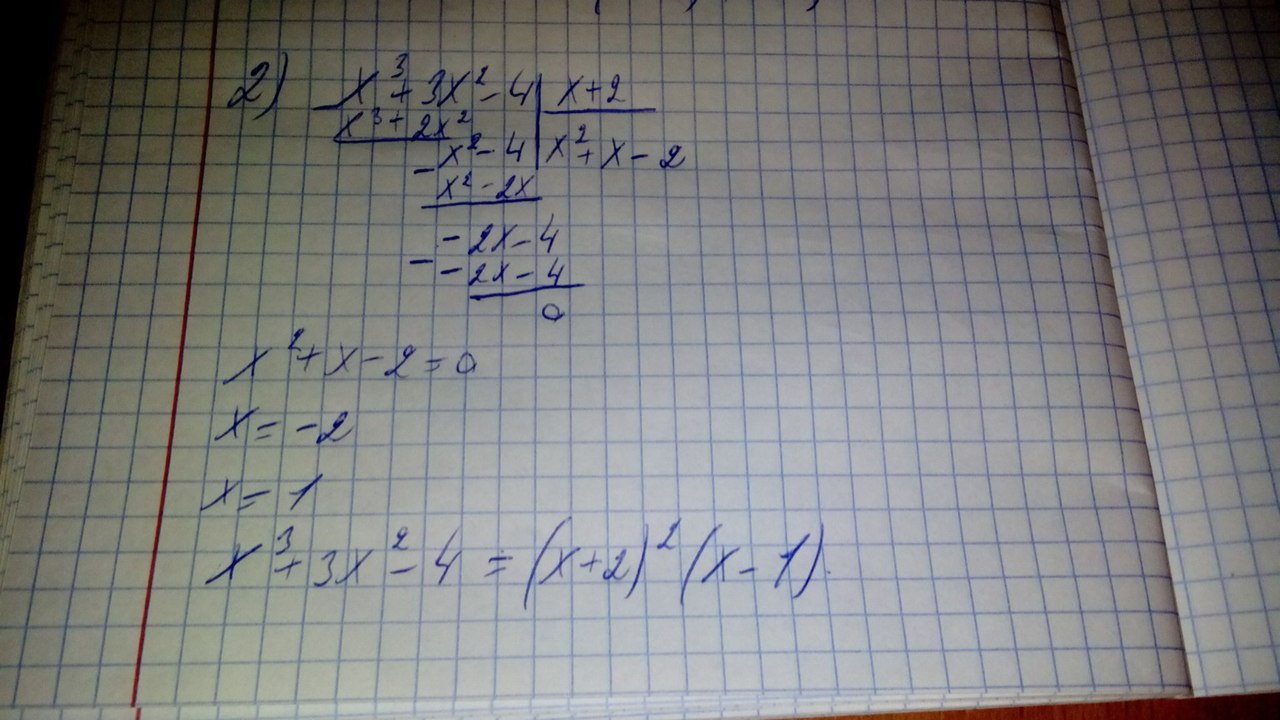 2) x³+3x²-4 | x+2
x³+2x²
-x²-4 | x²+x-2
x²-2x
- -2x-4
-2x-4
0
x²+x-2=0
x=-2
x=1
x³+3x²-4=(x+2)²(x-1).